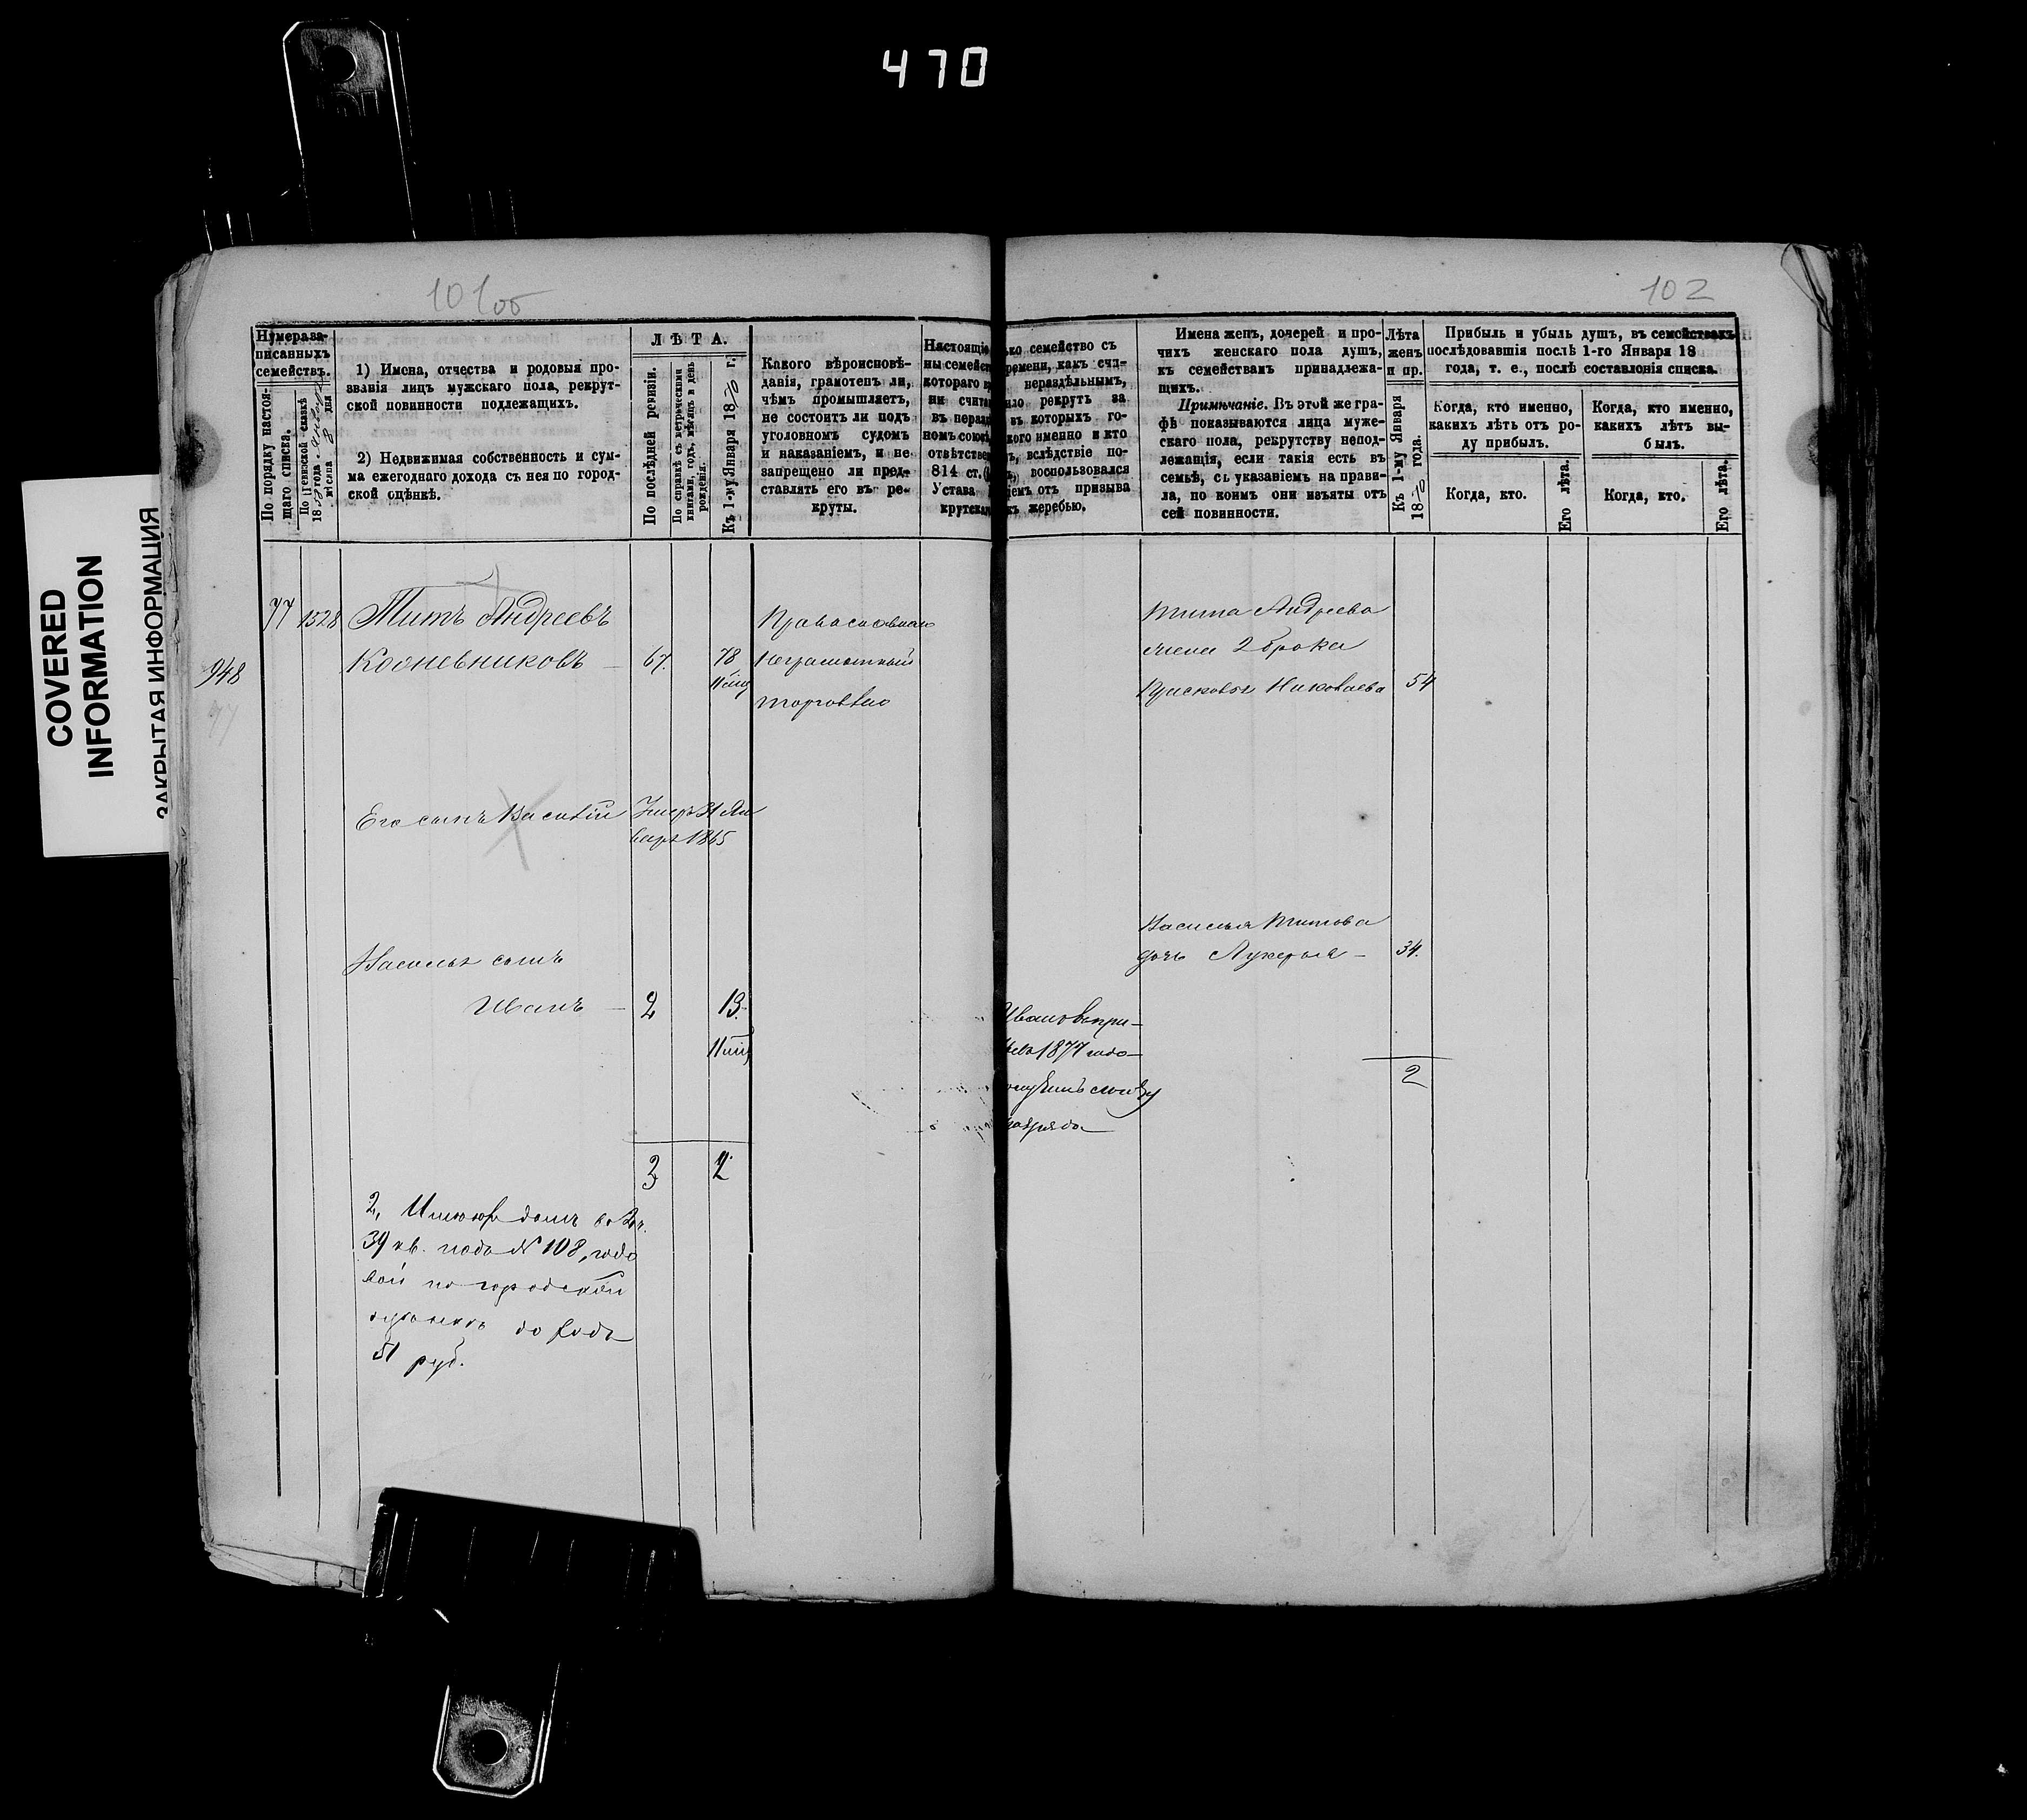 470
COVERED
INFORMATION
ЗАКРЫТАЯ ИНФОРМАЦИЯ
101об
102
Нумера за-
писанныхъ
семействъ.
По порядку настоя-
щаго списка.
По ревизской сказкѣ
1858 года Января
мѣсяца 8 дня
1) Имена, отчества и родовыя про-
званія лицъ мужскаго пола, рекрут-
ской повинности подлежащихъ.
2) Недвижимая собственность и сум-
ма ежегоднаго дохода съ нея по город-
ской оцѣнкѣ.
ЛѢТА.
По послѣдней ревизіи.
По справкѣ съ метрическими
книгами, годъ, мѣсяцъ и день
рожденія.
Къ 1-му Января 1870 г.
Какого вѣроисповѣ-
данія, грамотенъ ли,
чѣмъ промышляетъ,
не состоитъ ли подъ
уголовномъ судомъ
и наказаніемъ, и не
запрещено ли пред-
ставлять его въ ре-
круты.
Настоящіе
ны семейст
котораго в
ни считае
въ нераз
номъ союз
отвѣтствен
814 ст.
Устава
крутска
ко семейство съ
ремени, какъ счи-
нераздѣльнымъ,
ило рекрутъ за
въ которыхъ го-
кого именно и кто
ъ, вслѣдствіе по-
воспользовался
іемъ отъ призыва
къ жеребью.
Имена женъ, дочерей и про-
чихъ женскаго пола душъ,
къ семействамъ принадлежа-
щихъ.
Примѣчаніе. Въ этой же гра-
фѣ показываются лица муже-
скаго пола, рекрутству непод-
лежащія, если такія есть въ
семьѣ, съ указаніемъ на прави-
ла, по коимъ они изъяты отъ
сей повинности.
Лѣта
женъ
и пр.
Къ 1-му Января
1870 года.
Прибыль и убыль душъ, въ семействахъ
послѣдовавшія послѣ 1-го Января 18
года, т. е., послѣ составленія списка.
Когда, кто именно,
какихъ лѣтъ отъ ро-
ду прибылъ.
Когда, кто именно,
какихъ лѣтъ вы-
былъ.
Когда, кто.
Его лѣта.
Когда, кто.
Его лѣта.
77 1528 Титъ Андреевъ
Кооневниковъ — 67. 78
11 мѣс
948
77
Православнаго
неграмотный
торговлею
Тита Андреева
жена 2 брака
Прасковья Николаева 54
Его сынъ Василій Умеръ 31 Ян
варя 1865
Василья Титова
дочь Лукерья — 34.
Василья сынъ
Иванъ — 2 13.
11 мѣс
1877 года
2
разряда
3 2
2, Имѣютъ домъ во 2 ч.
39 кв. подъ № 108, годо
вой по городской
оцѣнкѣ доходъ
51 руб.